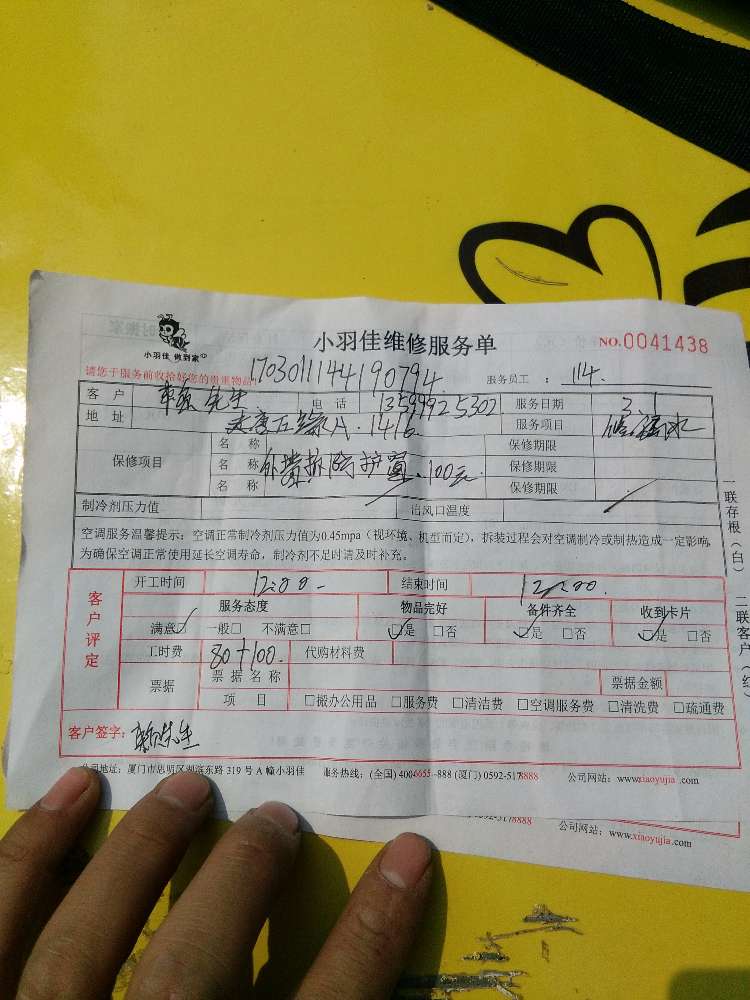 小羽佳 做到家
小羽佳维修服务单 NO.0041438
请您于服务前收拾好您的贵重物品!
1703011144190794. 服务员工 : 114.
客 户 先生 电 话 13599925302 服务日期 3 1
地 址 A.1416 服务项目 修漏水
保修项目
名 称 保修期限
名 称 外带拆防护窗.100元. 保修期限
名 称 保修期限
制冷剂压力值 岀风口温度
空调服务温馨提示：空调正常制冷剂压力值为0.45mpa（视环境、机型而定），拆装过程会对空调制冷或制热造成一定影响，
为确保空调正常使用延长空调寿命，制冷剂不足时请及时补充。
一联存根（白） 二联客户（红）
客户评定
开工时间 12:00 结束时间 12:00.
服务态度 物品完好 备件齐全 收到卡片
满意□ 一般□ 不满意□ □是 □否 □是 □否 □是 □否
工时费 80+100. 代购材料费
票据 票 据 名 称 票据金额
项 目 □搬办公用品 □服务费 □清洁费 □空调服务费 □清洗费 □疏通费
客户签字: 先生
公司地址: 厦门市思明区湖滨东路 319 号 A 幢小羽佳 服务热线: (全国) 4006655-888 (厦门) 0592-5178888 公司网站: www.xiaoyujia.com
0592-5178888 公司网站: www.xiaoyujia.com